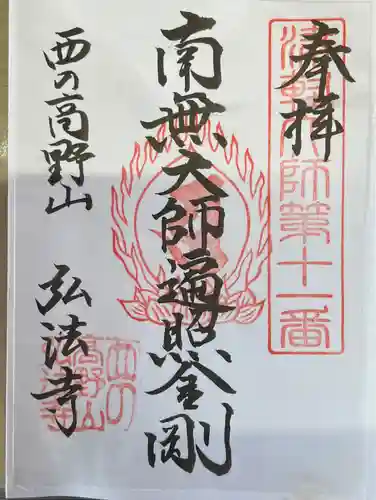 奉拝
師第十一番
南無大師遍照金剛
西の高野山 弘法寺
西の高野山